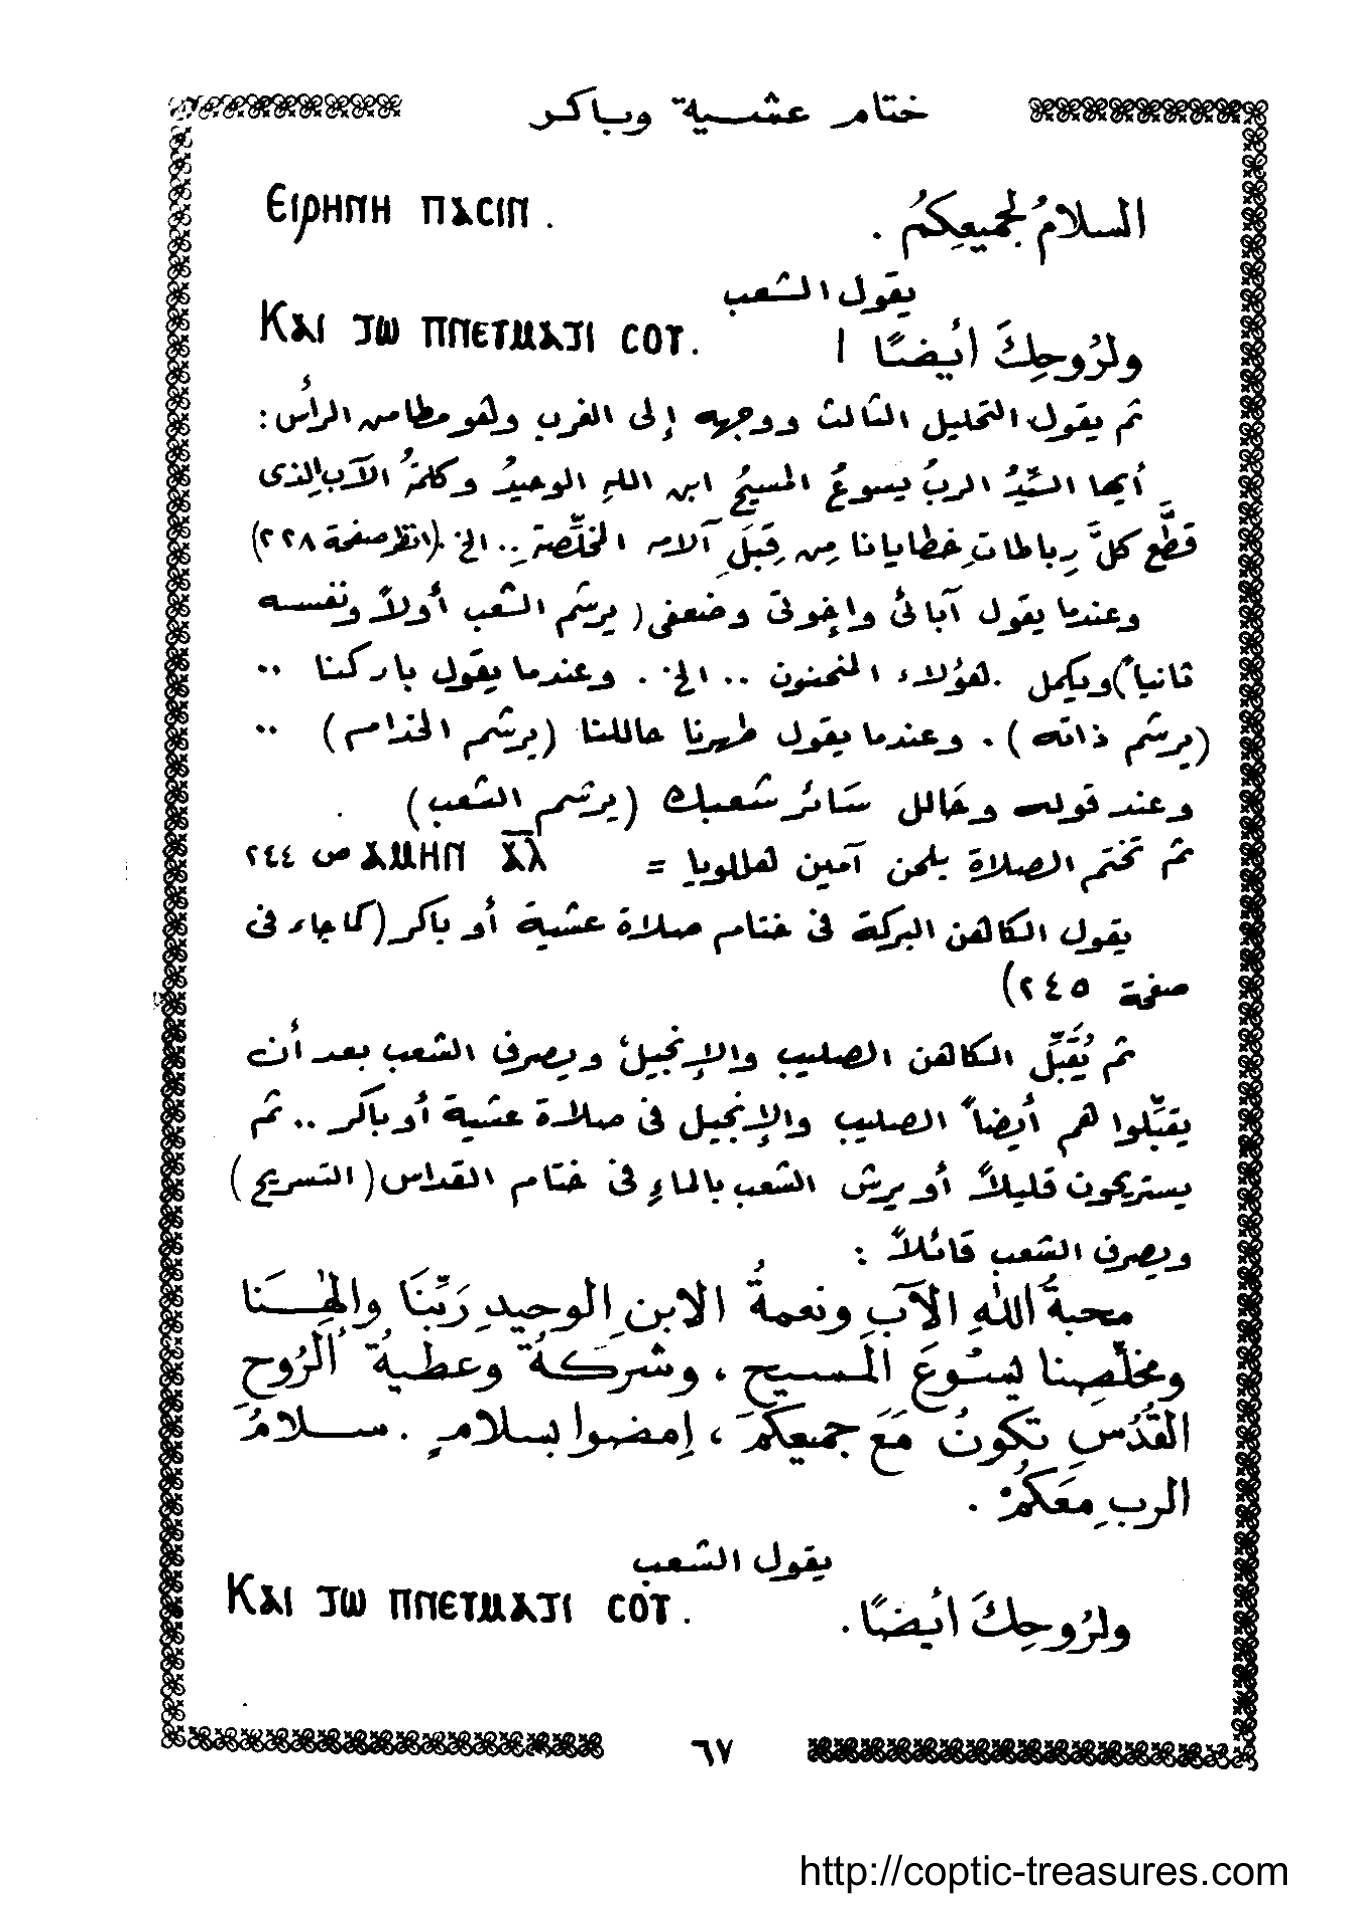 ختام عشية وباكر
السلامُ لجميعِكُم . Ⲉⲓⲣⲏⲛⲏ ⲡⲁⲥⲓⲛ .
يقول الشعب
ولرُوحِكَ أيضًا Ⲕⲁⲓ ⲧⲱ ⲡⲛⲉⲩⲙⲁⲧⲓ ⲥⲟⲩ .
ثم يقول التحليل الثالث ووجهه إلى الغرب وهو مطامن الرأس :
أيها السيِّدُ الربُ يسوعُ المسيحُ ابن اللهِ الوحيدُ وكلمةُ الآب الذى
قطَّع كلَّ رِباطاتِ خطايانا مِن قِبَلِ آلامه المخلِّصةِ .. الخ . (انظر صفحة ٢٢٨)
وعندما يقول آبائى وإخوتى وضعفى ( يرشم الشعب أولاً ونفسه
ثانياً ) ويكمل . هؤلاء المنحنون .. الخ . وعندما يقول باركنا ..
(يرشم ذاته ) . وعندما يقول طهرنا حاللنا (يرشم الخدام) ..
وعند قوله وحَالل سَائر شعبك (يرشم الشعب)
ثم تختم الصلاة بلحن آمين هللويا = ⲁⲙⲏⲛ ⲁ̅ⲗ̅ ص ٢٤٤
يقول الكاهن البركة فى ختام صلاة عشية أو باكر (كما جاء فى
صفحة ٢٤٥)
ثم يُقَبِّل الكاهن الصليب والإنجيل ويصرف الشعب بعد أن
يقبِّلوا هم أيضاً الصليب والإنجيل فى صلاة عشية أو باكر .. ثم
يستريحون قليلاً أو يرش الشعب بالماءِ فى ختام القداس ( التسريح )
ويصرف الشعب قائلاً :
محبةُ اللهِ الآبِ ونعمةُ الابنِ الوحيدِ رَبِّنَا وإلهِنَا
ومخلِّصِنا يسُوعَ المسيحِ ، وشركةُ وعطيةُ الرُوحِ
القُدُسِ تكونُ مَعَ جميعِكُمَ ، اِمضوا بسلامٍ . سلامُ
الربِ مَعَكُمْ .
يقول الشعب
ولرُوحِكَ أيضًا . Ⲕⲁⲓ ⲧⲱ ⲡⲛⲉⲩⲙⲁⲧⲓ ⲥⲟⲩ .
٦٧
http://coptic-treasures.com